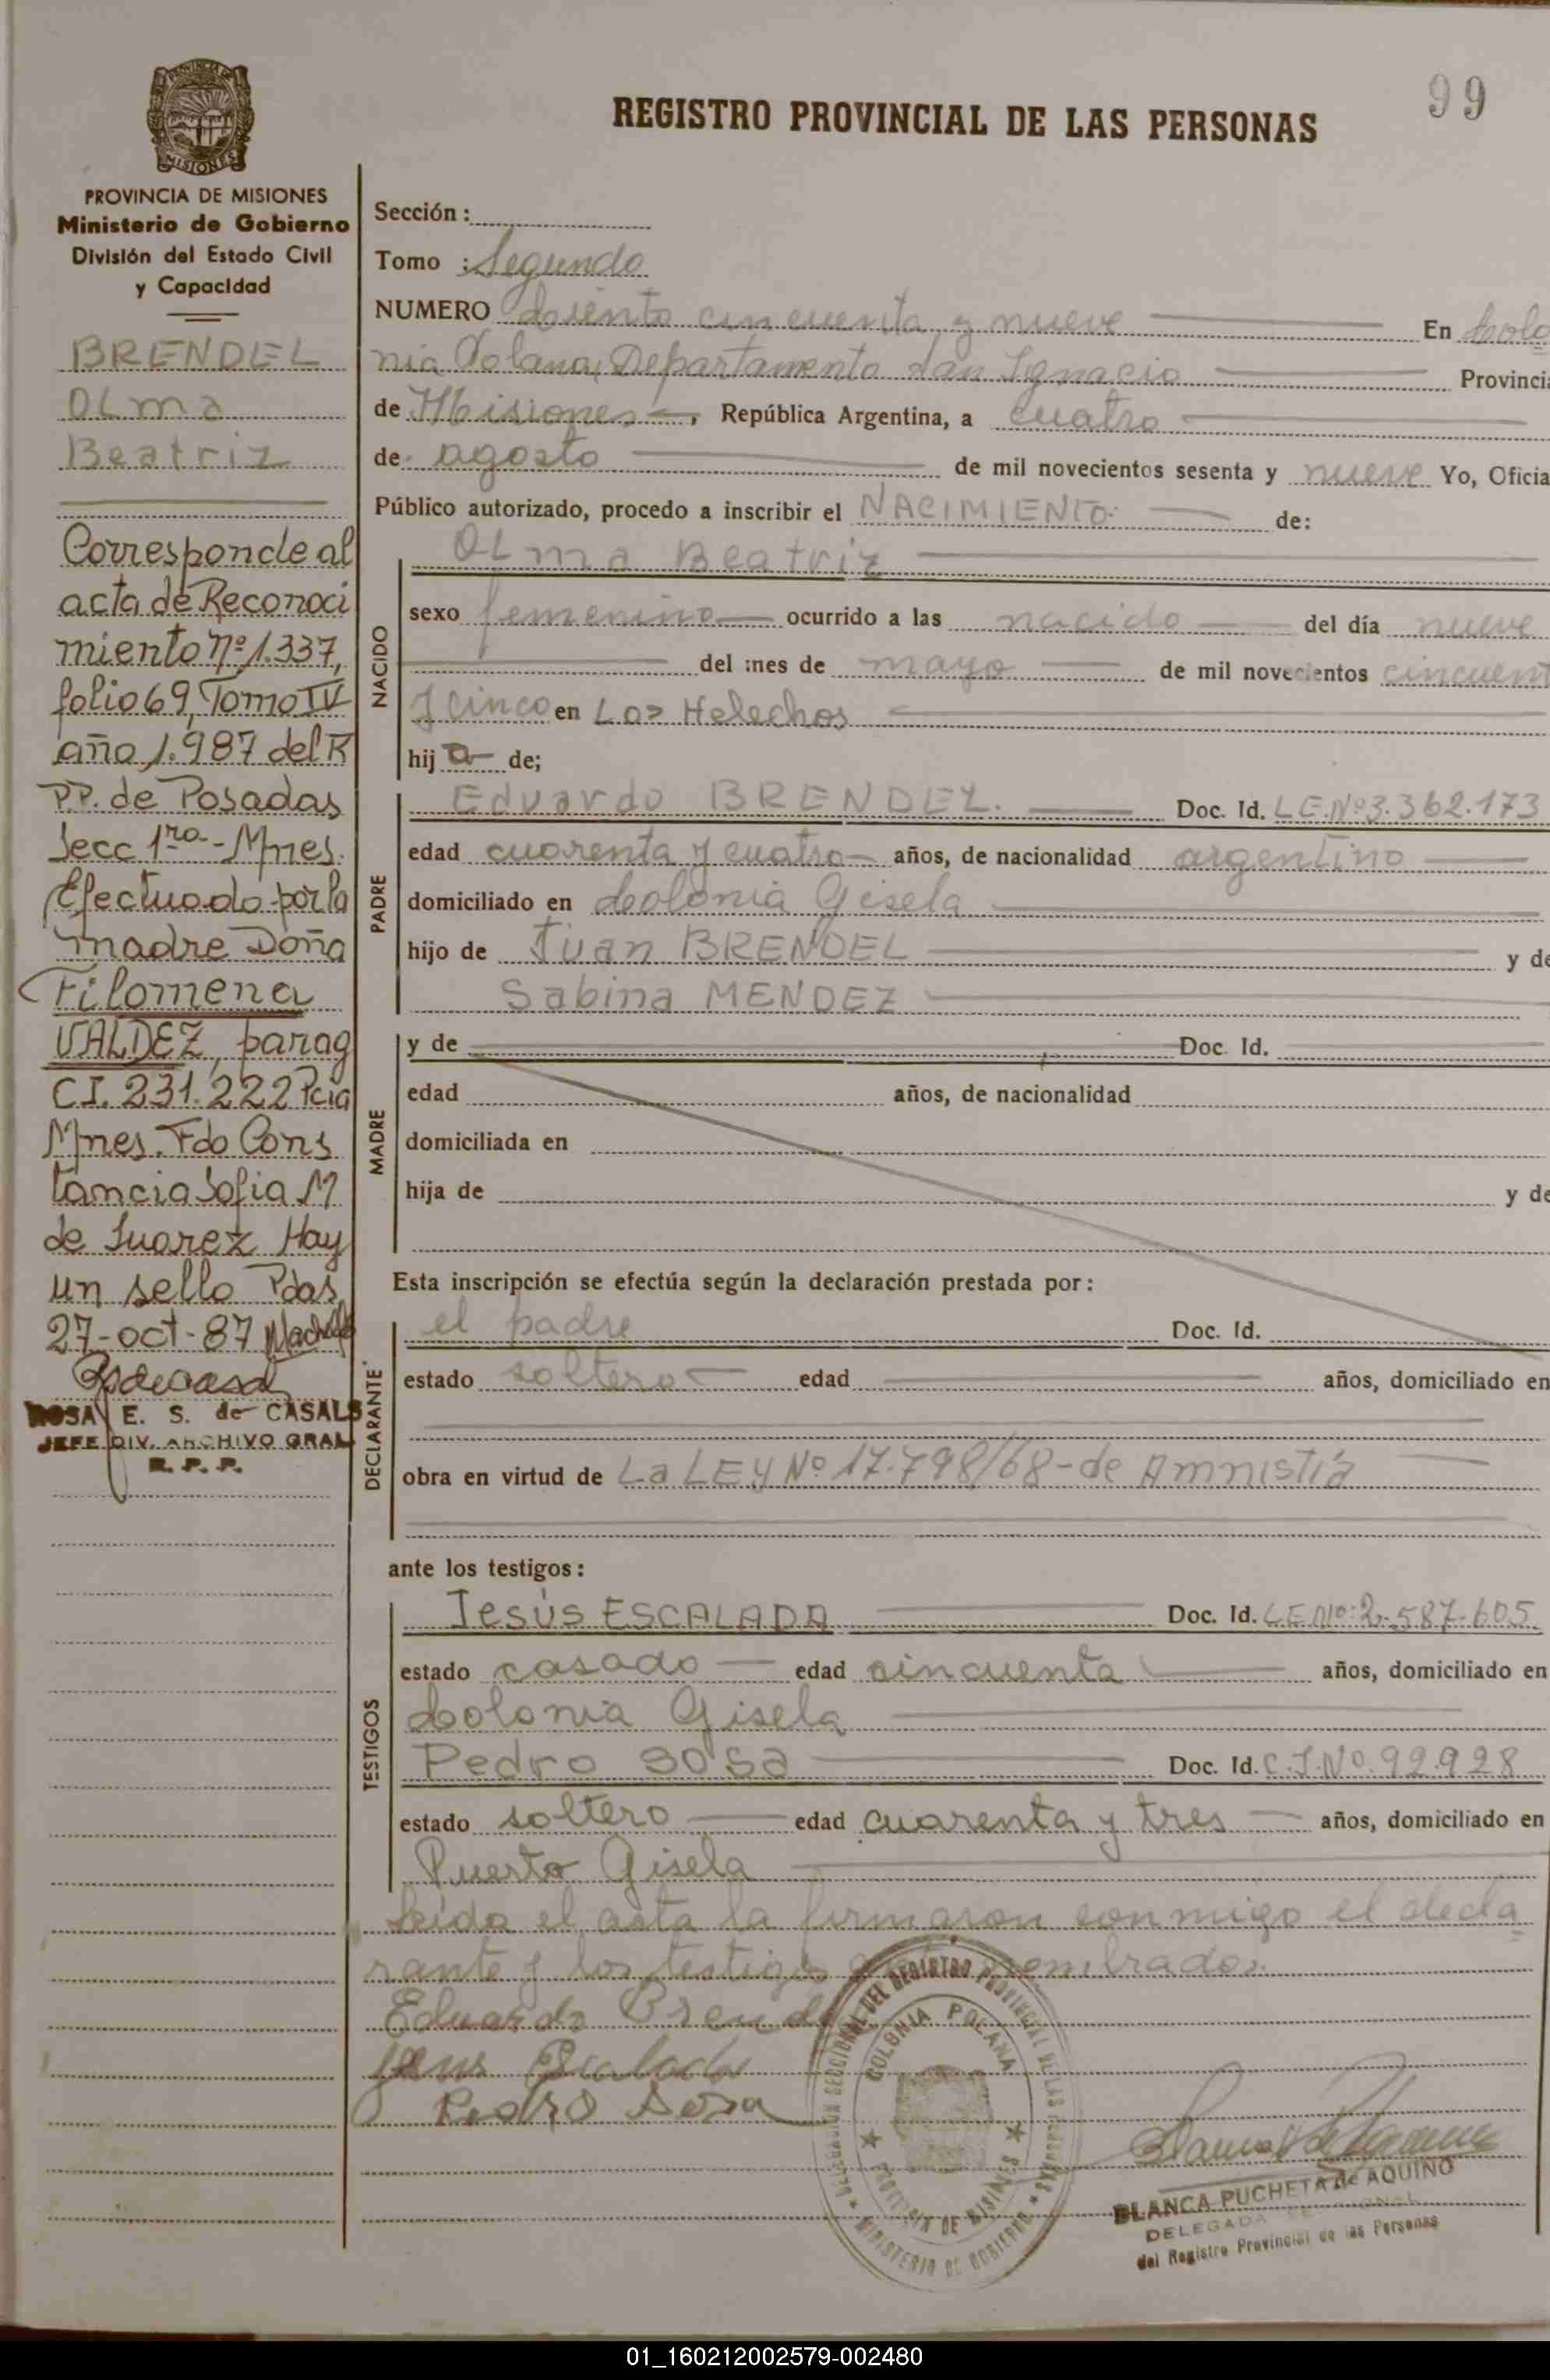 99
REGISTRO PROVINCIAL DE LAS PERSONAS
PROVINCIA DE MISIONES
Ministerio de Gobierno
División del Estado Civil
y Capacidad
BRENDEL
OLma
Beatriz
Corresponde al
acta de Reconoci
miento Nº 1.337,
folio 69, Tomo IV
año 1.987 del R
P.P. de Posadas
Secc 1ra - Mnes.
Efectuado por la
madre Doña
Filomena
VALDEZ, parag
C.I. 231.222 Pcia
Mnes. Fdo Cons
tancia Sofia M
de Suarez Hay
un sello Pdas,
27-oct-87
ROSA E. S. de CASALS
JEFE DIV. ARCHIVO GRAL
R. P. P.
Sección:
Tomo : Segundo
NUMERO Ciento cincuenta y nueve En Colo
nia Polana, Departamento San Ignacio Provincia
de Misiones, República Argentina, a cuatro
de agosto de mil novecientos sesenta y nueve Yo, Oficia
Público autorizado, procedo a inscribir el NACIMIENTO de:
NACIDO
OLma Beatriz
sexo femenino ocurrido a las nacido del día nueve
del mes de mayo de mil novecientos cincuent
y cinco en Los Helechos
hij a de;
PADRE
Eduardo BRENDEL. Doc. Id. L.E.Nº3.362.173
edad cuarenta y cuatro años, de nacionalidad argentino
domiciliado en Colonia Gisela
hijo de Juan BRENDEL y de
Sabina MENDEZ
MADRE
y de Doc. Id.
edad años, de nacionalidad
domiciliada en
hija de y de
Esta inscripción se efectúa según la declaración prestada por:
DECLARANTE
el padre Doc. Id.
estado soltero edad años, domiciliado en
obra en virtud de La LEY Nº 17.798/68 - de Amnistía
ante los testigos:
TESTIGOS
Jesús ESCALADA Doc. Id. L.E.Nº: 2.587.605
estado casado edad cincuenta años, domiciliado en
Colonia Gisela
Pedro SOSa Doc. Id. C.I.Nº.92.928
estado soltero edad cuarenta y tres años, domiciliado en
Puerto Gisela
Leida el acta la firmaron conmigo el decla
rante y los testigos nombrados.
Eduardo Brendel
Jesus Escalada
Pedro Sosa
DELEGACION SECCIONAL DEL REGISTRO PROVINCIAL DE LAS PERSONAS
COLONIA POLANA
PROVINCIA DE MISIONES
MINISTERIO DE GOBIERNO
BLANCA PUCHETA de AQUINO
DELEGADA SECCIONAL
del Registro Provincial de las Personas
01_160212002579-002480